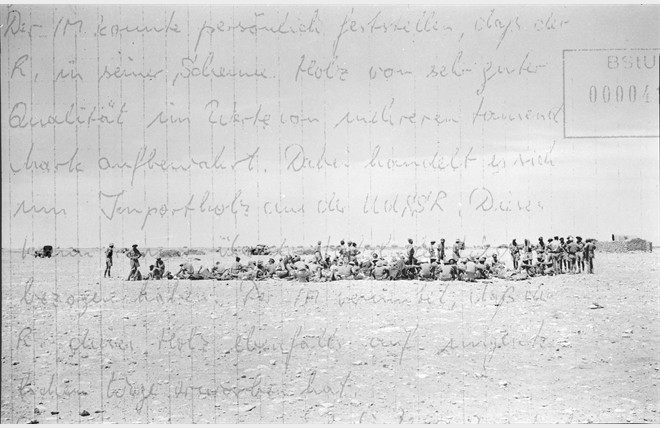 Der IM konnte persönlich feststellen, daß der
R. in seiner Scheune Holz von sehr guter
BStU
00004
Qualität im Werte von mehreren tausend
Mark aufbewahrt. Dabei handelt es sich
um Importholz aus der UdSSR. Dieses
kann
bezogen haben. Der IM vermutet, daß der
R. dieses Holz ebenfalls auf
lichen Wege erworben hat.